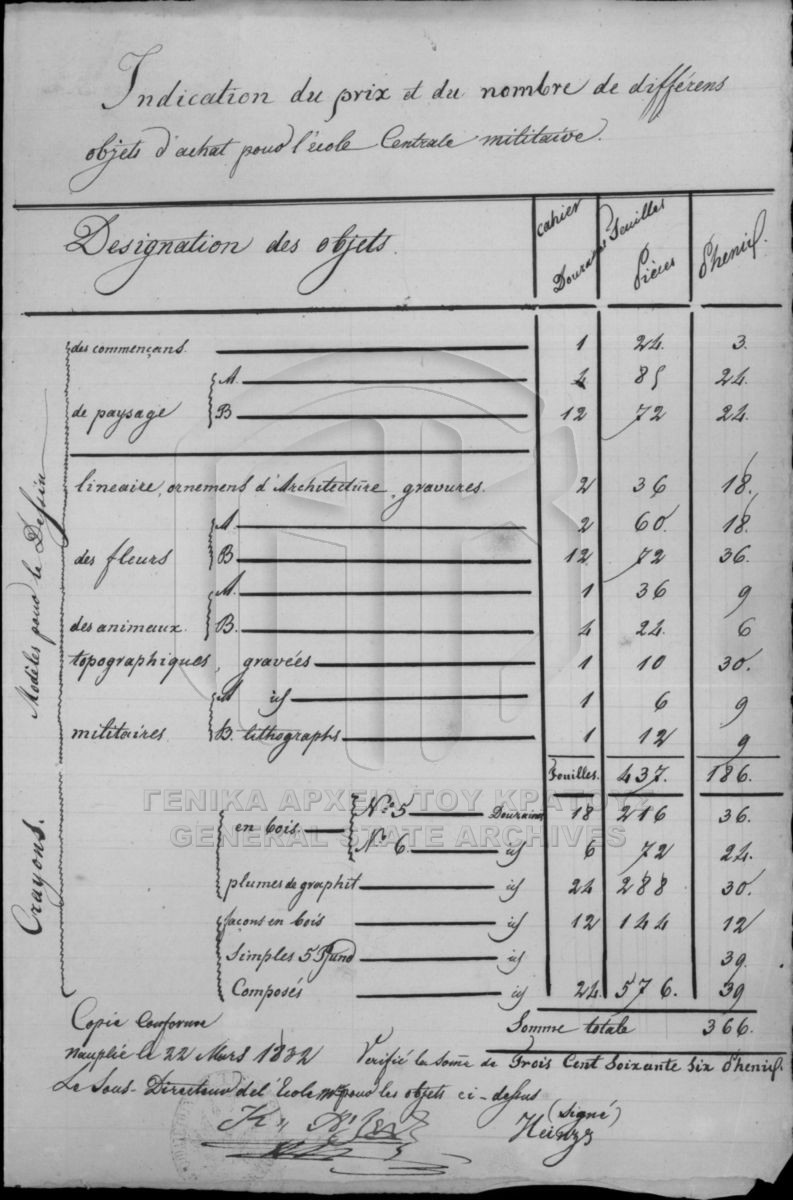 Indication du prix et du nombre de différens
objets d'achat pour l'école Centrale militaire.
Designation des objets.
cahier
Douzaine
Feuilles
Pièces
Phenix.
Modèles pour le Dessin
des commençans. 1 24. 3.
A. 4 85 24.
de paysage B 12 72 24.
lineaire, ornemens d'Architecture, gravures. 2 36 18.
A. 2 60. 18.
des fleurs B 12. 72 36.
A. 1 36 9
des animaux. B. 4 24. 6
topographiques, gravées 1 10 30.
A id 1 6 9
militaires B. lithographs 1 12 9
Feuilles. 437. 186.
Crayons.
en bois. No. 5 Douzaines 18 216 36.
No. 6. id 6 72 24.
plumes de graphit id 24 288 30.
façons en bois id 12 144 12
Simples 5 Pfund id 39.
Composés id 24. 576. 39
Somme totale 366.
Copie conforme
nauplie le 22 Mars 1832
Verifié la some de Trois Cent Soixante Six Phenix.
Le Sous-Directeur de l'Ecole pour les objets ci-dessus
(signé)
ΓΕΝΙΚΑ ΑΡΧΕΙΑ ΤΟΥ ΚΡΑΤΟΥΣ
GENERAL STATE ARCHIVES